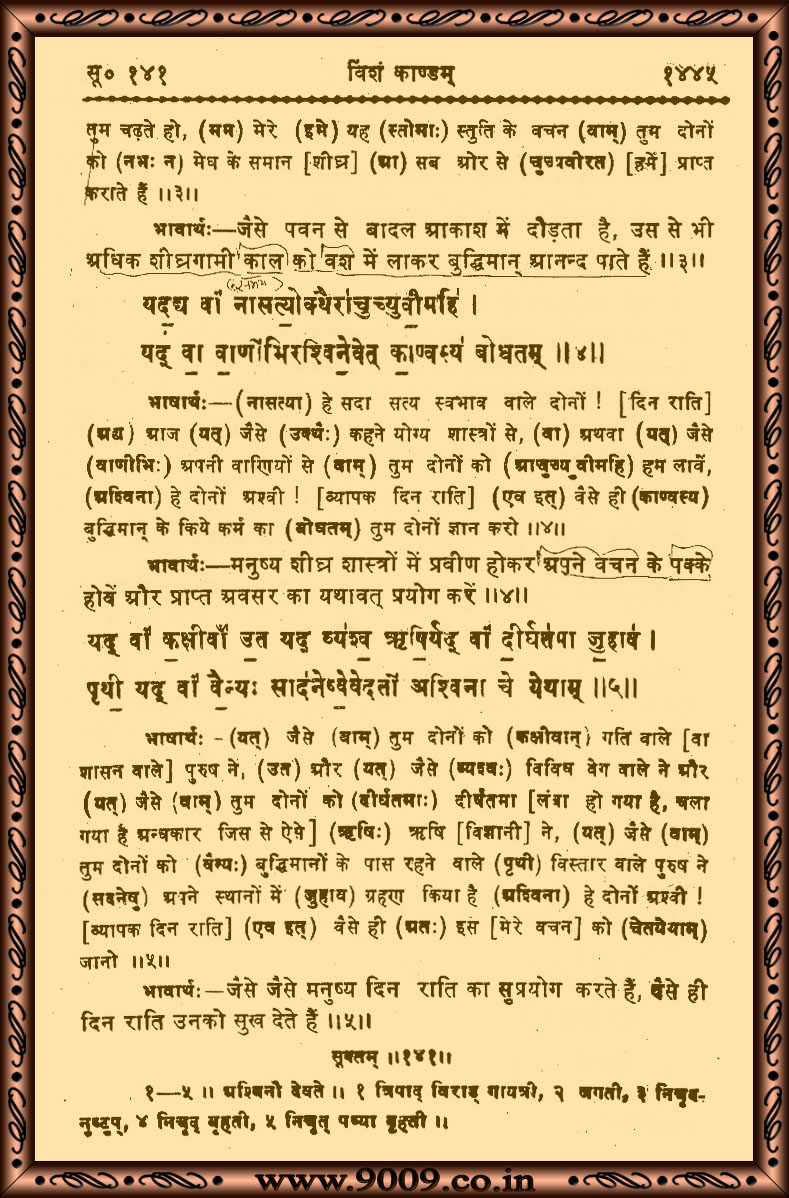 सू० १४१ विंशं काण्डम् १४४५
तुम चढ़ते हो, (मम) मेरे (इमे) यह (स्तोमाः) स्तुति के वचन (वाम्) तुम दोनों
को (नभः न) मेघ के समान [शीघ्र] (आ) सब ओर से (चुच्यवीरत) [हमें] प्राप्त
कराते हैं ॥३॥
भावार्थः—जैसे पवन से बादल आकाश में दौड़ता है, उस से भी
अधिक शीघ्रगामी काल को वश में लाकर बुद्धिमान् आनन्द पाते हैं ॥३॥
यद॒द्य वां॑ नासत्यो॒क्थैरा॑चुच्युवी॒महि॑ ।
यद् वा॒ वाणी॑भिरश्विने॒वेत् का॒ण्वस्य॑ बोधतम् ॥४॥
भाषार्थः—(नासत्या) हे सदा सत्य स्वभाव वाले दोनों ! [दिन राति]
(अद्य) आज (यत्) जैसे (उक्थैः) कहने योग्य शास्त्रों से, (वा) अथवा (यत्) जैसे
(वाणीभिः) अपनी वाणियों से (वाम्) तुम दोनों को (आचुच्युवीमहि) हम लावें,
(अश्विना) हे दोनों अश्वी ! [व्यापक दिन राति] (एव इत्) वैसे ही (काण्वस्य)
बुद्धिमान् के किये कर्म का (बोधतम्) तुम दोनों ज्ञान करो ॥४॥
भावार्थः—मनुष्य शीघ्र शास्त्रों में प्रवीण होकर अपने वचन के पक्के
होवें और प्राप्त अवसर का यथावत् प्रयोग करें ॥४॥
यद् वां॑ क॒क्षीवाँ॑ उ॒त यद् व्य॑श्व॒ ऋषि॒र्यद् वां॑ दी॒र्घत॑मा जु॒हाव॑ ।
पृथी॒ यद् वां॑ वै॒न्यः साद॑नेष्वे॒वेदतो॑ अश्विना चे येथाम् ॥५॥
भाषार्थः - (यत्) जैसे (वाम्) तुम दोनों को (कक्षीवान्) गति वाले [वा
शासन वाले] पुरुष ने, (उत) और (यत्) जैसे (व्यश्वः) विविध वेग वाले ने और
(यत्) जैसे (वाम्) तुम दोनों को (दीर्घतमाः) दीर्घतमा [लंबा हो गया है, चला
गया है अन्धकार जिस से ऐसे] (ऋषिः) ऋषि [विज्ञानी] ने, (यत्) जैसे (वाम्)
तुम दोनों को (वैन्यः) बुद्धिमानों के पास रहने वाले (पृथी) विस्तार वाले पुरुष ने
(सदनेषु) अपने स्थानों में (जुहाव) ग्रहण किया है (अश्विना) हे दोनों अश्वी !
[व्यापक दिन राति] (एव इत्) वैसे ही (अतः) इस [मेरे वचन] को (चेतयेथाम्)
जानो ॥५॥
भावार्थः—जैसे जैसे मनुष्य दिन राति का सुप्रयोग करते हैं, वैसे ही
दिन राति उनको सुख देते हैं ॥५॥
सूक्तम् ॥१४१॥
१—५ ॥ अश्विनौ देवते ॥ १ त्रिपाद् विराड् गायत्री, २ जगती, ३ निचृद-
नुष्टुप्, ४ निचृद् बृहती, ५ निचृत् पथ्या बृहती ॥
www.9009.co.in